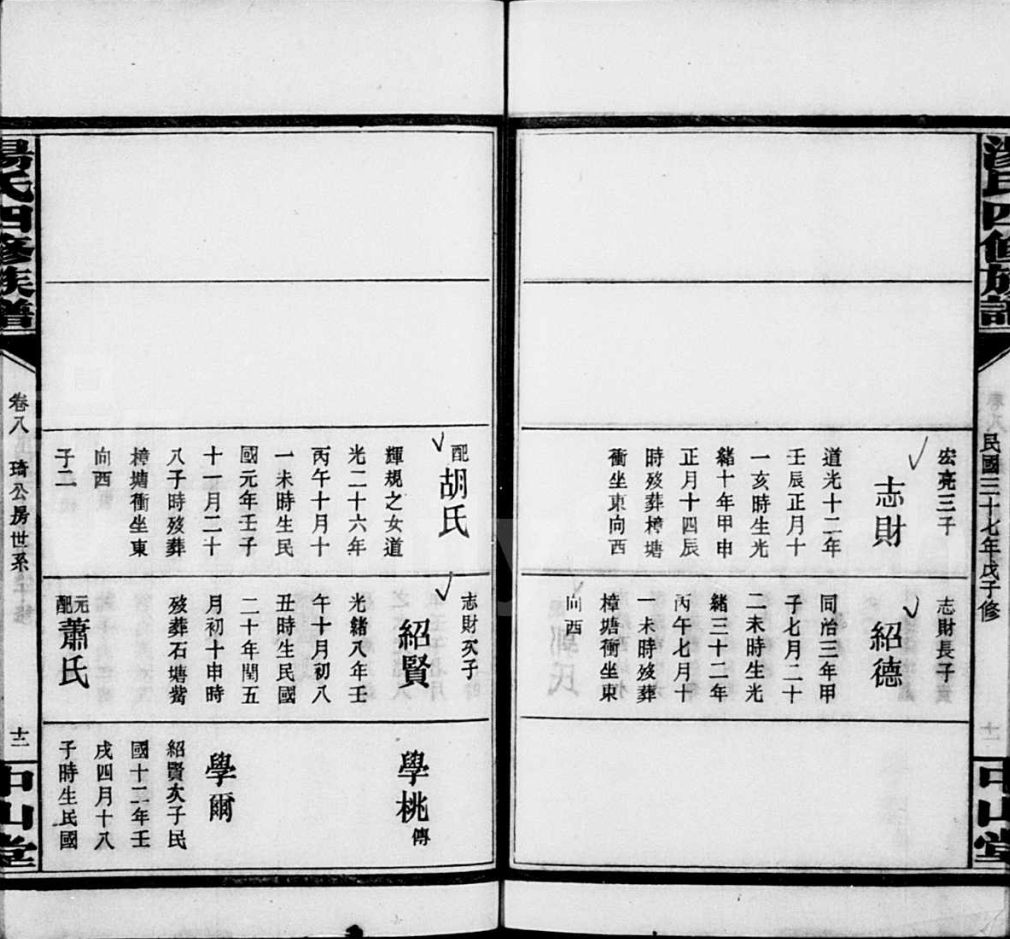 湯氏四修族譜
民國三十七年戊子修
中山堂
宏亮三子
志財
道光十二年
壬辰正月十
一亥時生光
緒十年甲申
正月十四辰
時歿葬樟塘
衝坐東向西
志財長子
紹德
同治三年甲
子七月二十
二未時生光
緒三十二年
丙午七月十
一未時歿葬
樟塘衝坐東
向西
配胡氏
輝規之女道
光二十六年
丙午十月十
一未時生民
國元年壬子
十一月二十
八子時歿葬
樟塘衝坐東
向酉
子二
志財次子
紹賢
光緒八年壬
午十月初八
丑時生民國
二十年閏五
月初十申時
歿葬石塘嘴
元配蕭氏
學桃傳
學爾
紹賢次子民
國十二年壬
戌四月十八
子時生民國
湯氏四修族譜
卷八
琦公房世系
十二
中山堂